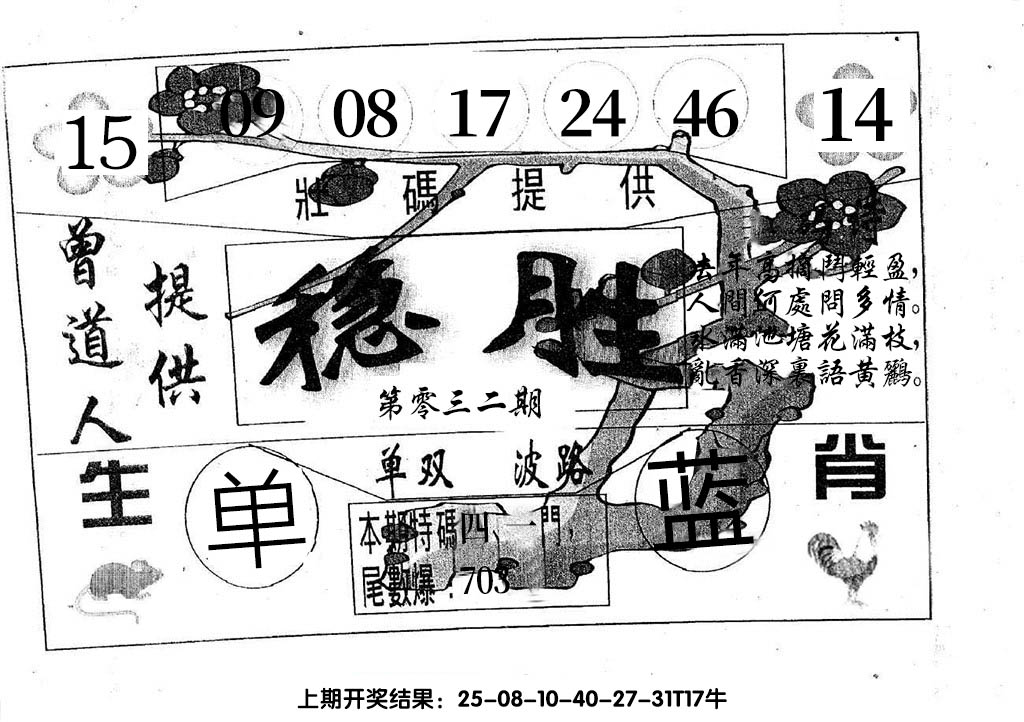 15 09 08 17 24 46 14
壯碼提供
曾道人
提供
稳胜
第零三二期
去年高摘鬥輕盈，
人間何處問多情。
水滿池塘花滿枝，
亂香深裏語黃鸝。
单双 波路
生
单
蓝
肖
本期特碼四、一門，
尾數爆：703
上期开奖结果：25-08-10-40-27-31T17牛